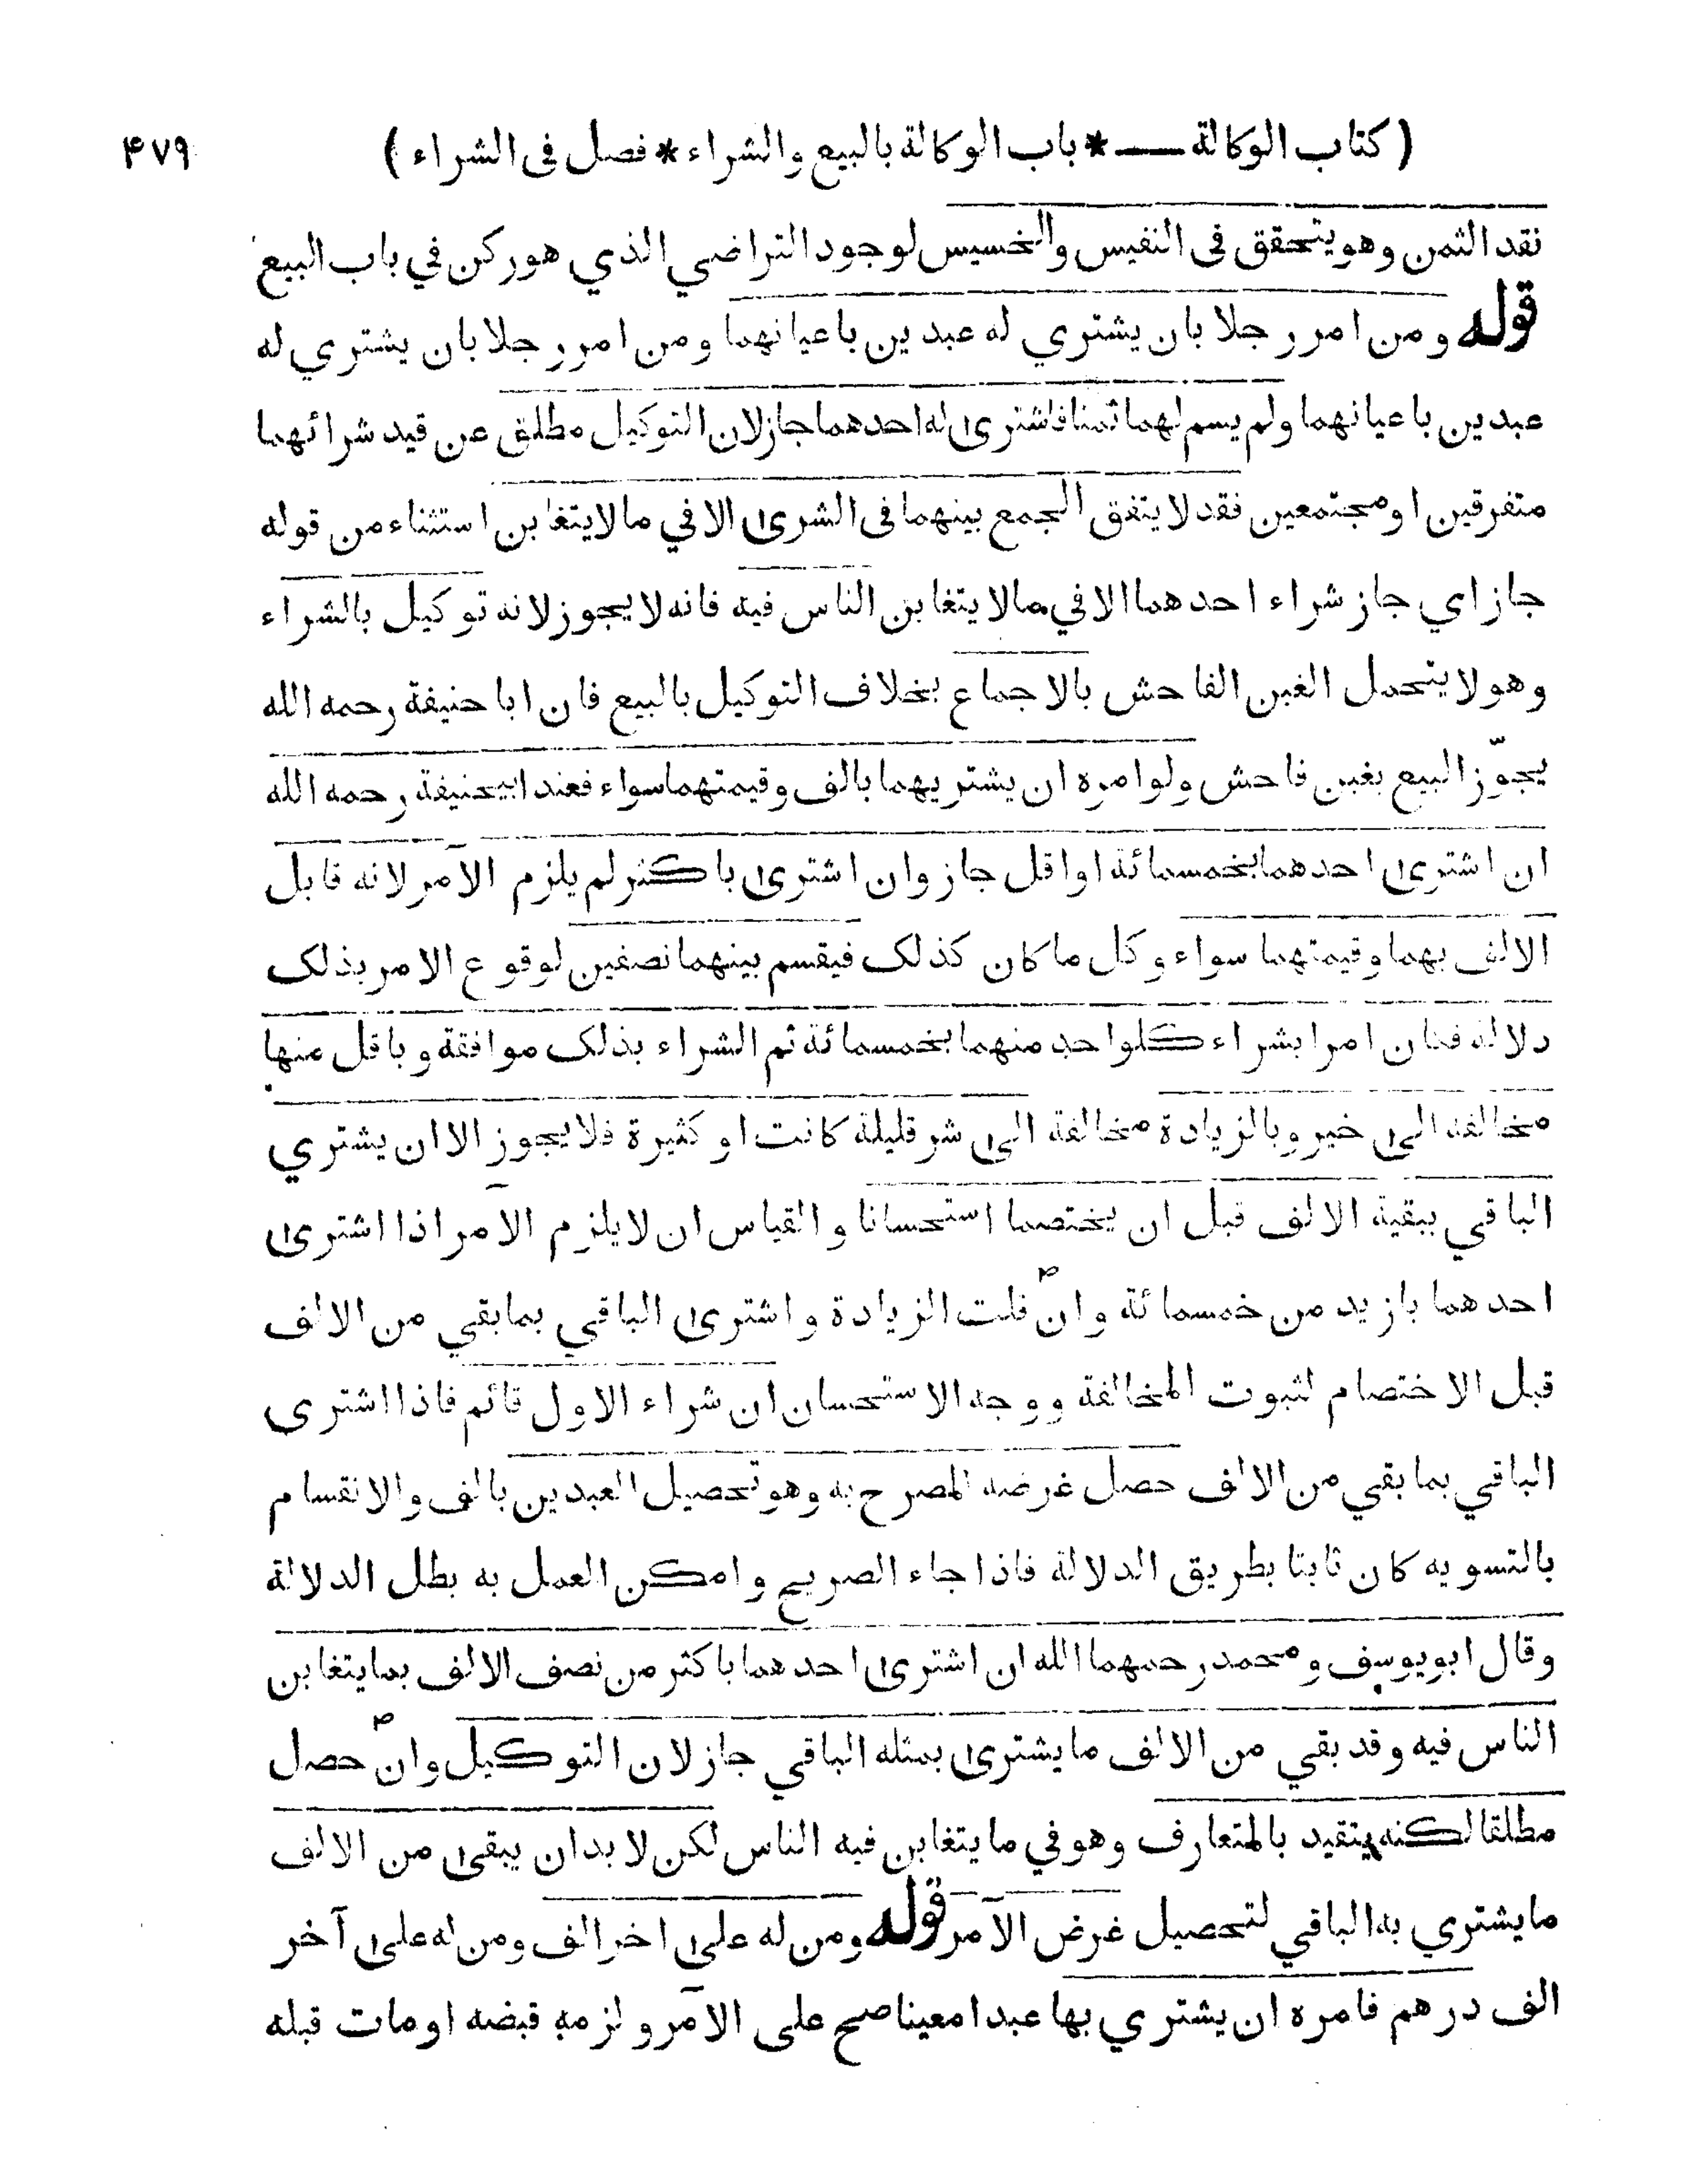 ( كتاب الوكالة — * باب الوكالة بالبيع والشراء * فصل فى الشراء ) ۴۷۹
نقد الثمن وهو يتحقق فى النفيس والخسيس لوجود التراضي الذي هو ركن في باب البيع
قوله ومن امر رجلا بان يشتري له عبدين باعيانهما ومن امر رجلا بان يشتري له
عبدين باعيانهما ولم يسم لهما ثمنا فاشترى له احدهما جاز لان التوكيل مطلق عن قيد شرائهما
متفرقين او مجتمعين فقد لا يتفق الجمع بينهما فى الشرى الا في ما لا يتغابن استثناء من قوله
جاز اي جاز شراء احدهما الا في ما لا يتغابن الناس فيه فانه لا يجوز لانه توكيل بالشراء
وهو لا يتحمل الغبن الفاحش بالاجماع بخلاف التوكيل بالبيع فان ابا حنيفة رحمه الله
يجوّز البيع بغبن فاحش ولو امره ان يشتريهما بالف وقيمتهما سواء فعند ابيحنيفة رحمه الله
ان اشترى احدهما بخمسمائة او اقل جاز وان اشترى باكثر لم يلزم الآمر لانه قابل
الالف بهما وقيمتهما سواء وكل ما كان كذلک فيقسم بينهما نصفين لوقوع الامر بذلک
دلالة فكان امرا بشراء كلواحد منهما بخمسمائة ثم الشراء بذلک موافقة وباقل منها
مخالفة الى خير وبالزيادة مخالفة الى شر قليلة كانت او كثيرة فلا يجوز الا ان يشتري
الباقي ببقية الالف قبل ان يختصما استحسانا والقياس ان لا يلزم الآمر اذا اشترى
احدهما بازيد من خمسمائة وان قلت الزيادة واشترى الباقي بما بقي من الالف
قبل الاختصام لثبوت المخالفة ووجه الاستحسان ان شراء الاول قائم فاذا اشترى
الباقي بما بقي من الالف حصل غرضه المصرح به وهو تحصيل العبدين بالف والانقسام
بالتسويه كان ثابتا بطريق الدلالة فاذا جاء الصريح وامكن العمل به بطل الدلالة
وقال ابويوسف ومحمد رحمهما الله ان اشترى احدهما باكثر من نصف الالف بما يتغابن
الناس فيه وقد بقي من الالف ما يشترى بمثله الباقي جاز لان التوكيل وان حصل
مطلقا لكنه يتقيد بالمتعارف وهو في ما يتغابن فيه الناس لكن لا بد ان يبقى من الالف
ما يشتري به الباقي لتحصيل غرض الآمر قوله ومن له على اخر الف ومن له على آخر
الف درهم فامره ان يشتري بها عبدا معينا صح على الآمر ولزمه قبضه او مات قبله